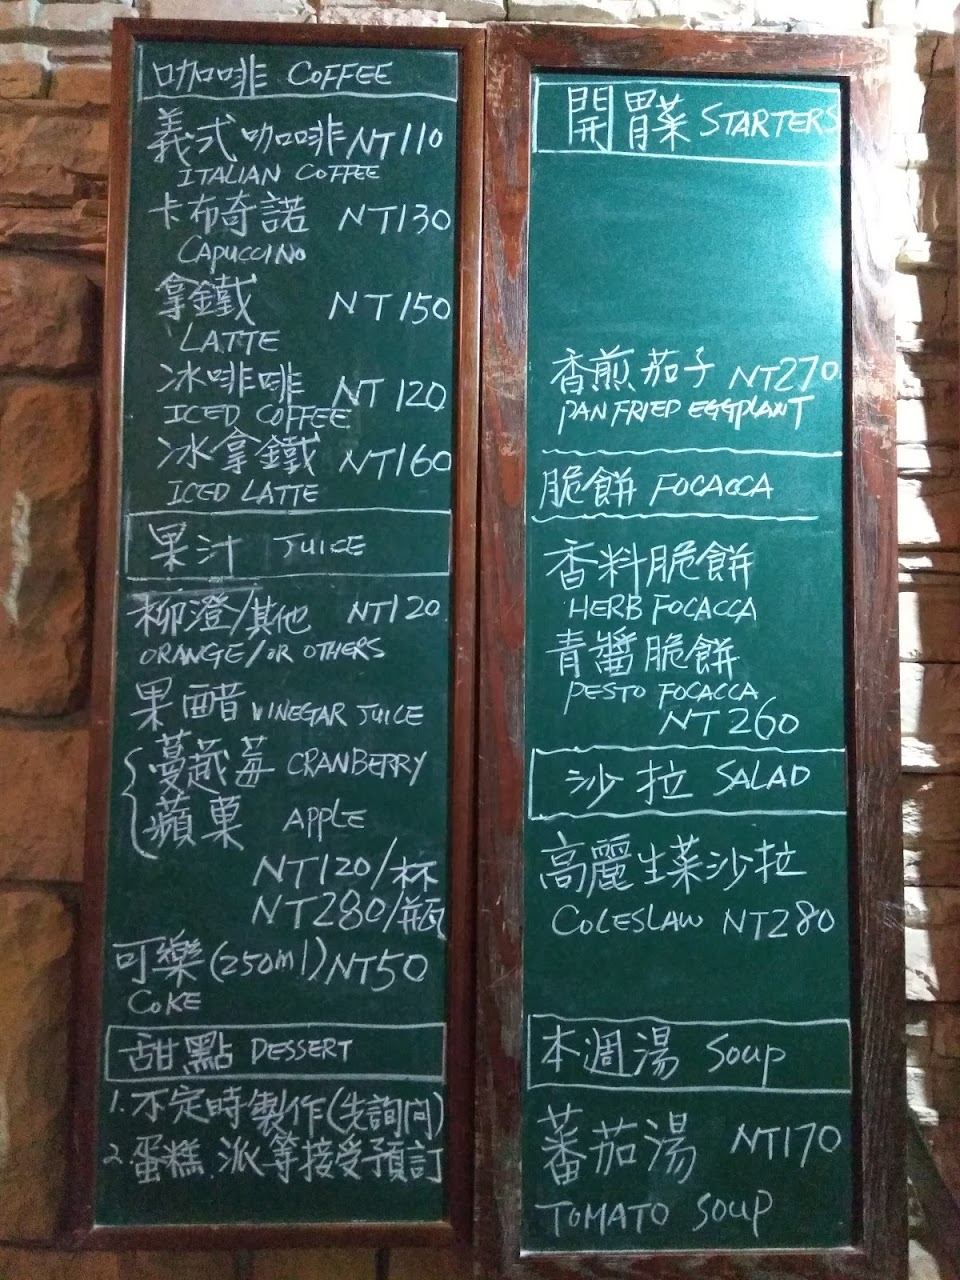 咖啡 COFFEE
義式咖啡 NT110
ITALIAN COFFEE
卡布奇諾 NT130
CAPUCCINO
拿鐵 NT150
LATTE
冰啡啡 NT120
ICED COFFEE
冰拿鐵 NT160
ICED LATTE
果汁 JUICE
柳澄/其他 NT120
ORANGE/OR OTHERS
果醋 VINEGAR JUICE
蔓越莓 CRANBERRY
蘋果 APPLE
NT120/杯
NT280/瓶
可樂(250ml)NT50
COKE
甜點 DESSERT
1.不定時製作(先詢問)
2.蛋糕.派等接受預訂
開胃菜 STARTERS
香煎茄子 NT270
PAN FRIED EGGPLANT
脆餅 FOCACCA
香料脆餅
HERB FOCACCA
青醬脆餅
PESTO FOCACCA
NT260
沙拉 SALAD
高麗生菜沙拉
COLESLAW NT280
本週湯 Soup
蕃茄湯 NT170
TOMATO Soup